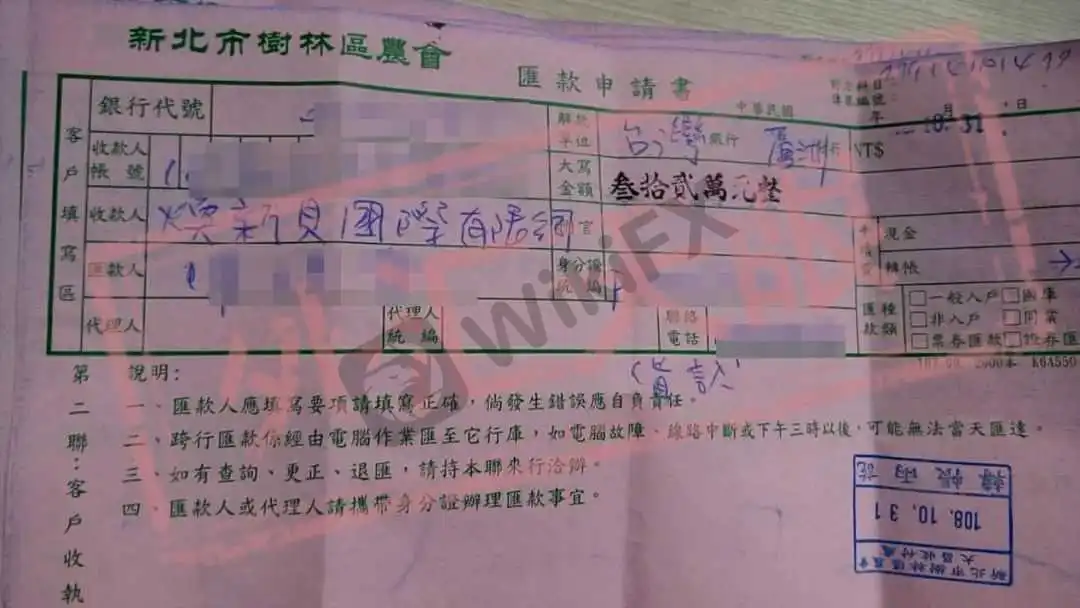 新北市樹林區農會
匯款申請書
中華民國 年 月 日
銀行代號
解款單位 台灣銀行 蘆洲
NT$
收款人帳號
大寫金額 叁拾貳萬元整
收款人 新貝國際有限
現金
匯款人
身分證統編
轉帳
代理人
代理人統編
聯絡電話
匯種
□一般入戶 □國庫
□非入戶 □同資
□票券匯款 □證券匯
客戶填寫區
貨款
K6A550
第二聯:客戶收執
說明:
一、匯款人應填寫要項請填寫正確,倘發生錯誤應自負責任。
二、跨行匯款係經由電腦作業匯至它行庫,如電腦故障、線路中斷或下午三時以後,可能無法當天匯達。
三、如有查詢、更正、退匯,請持本聯來行洽辦。
四、匯款人或代理人請攜帶身分證辦理匯款事宜。
新北市樹林區農會
108.10.31
轉帳兩訖
WikiFX